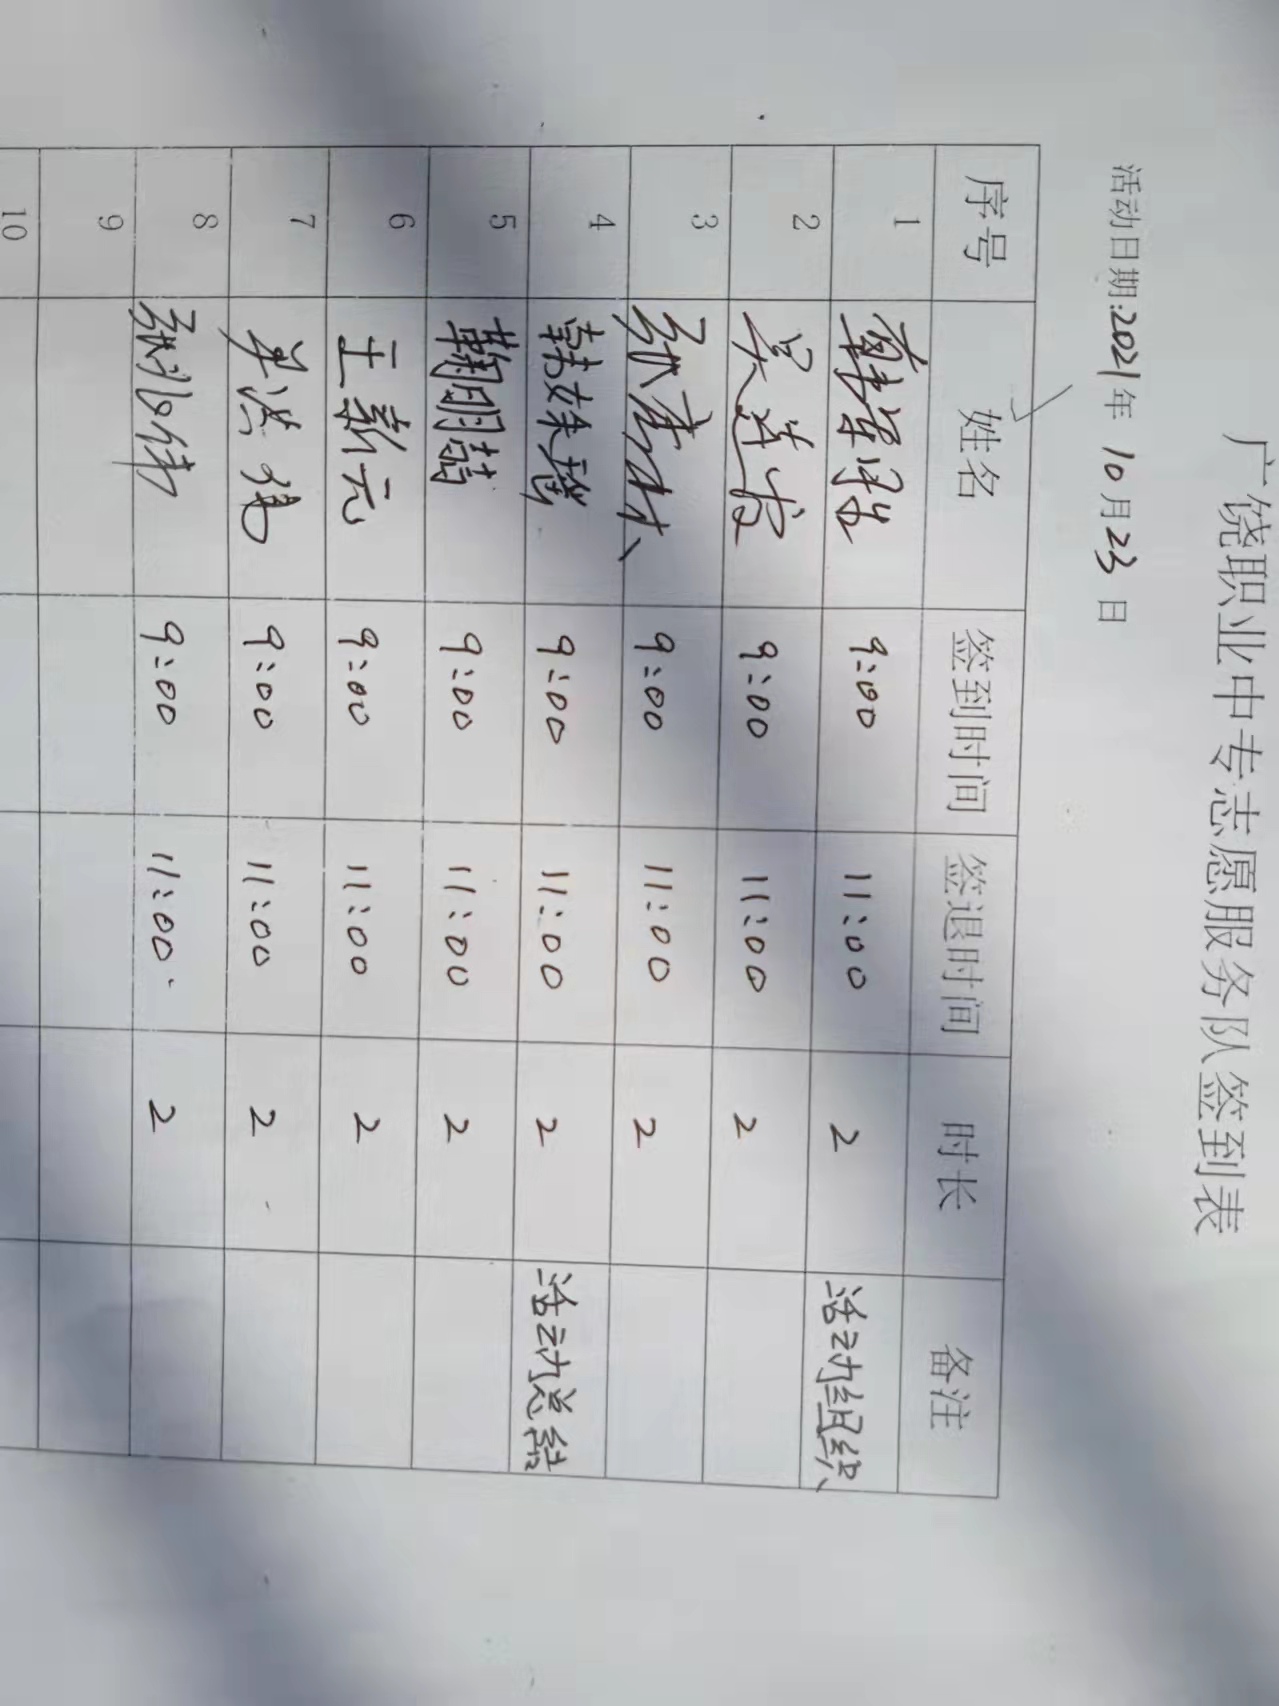 广饶职业中专志愿服务队签到表
活动日期:2021年 10月23日
序号 姓名 签到时间 签退时间 时长 备注
1 9:00 11:00 2 活动组织
2 9:00 11:00 2
3 9:00 11:00 2
4 韩 9:00 11:00 2 活动总结
5 鞠明慧 9:00 11:00 2
6 王新元 9:00 11:00 2
7 9:00 11:00 2
8 9:00 11:00 2
9
10